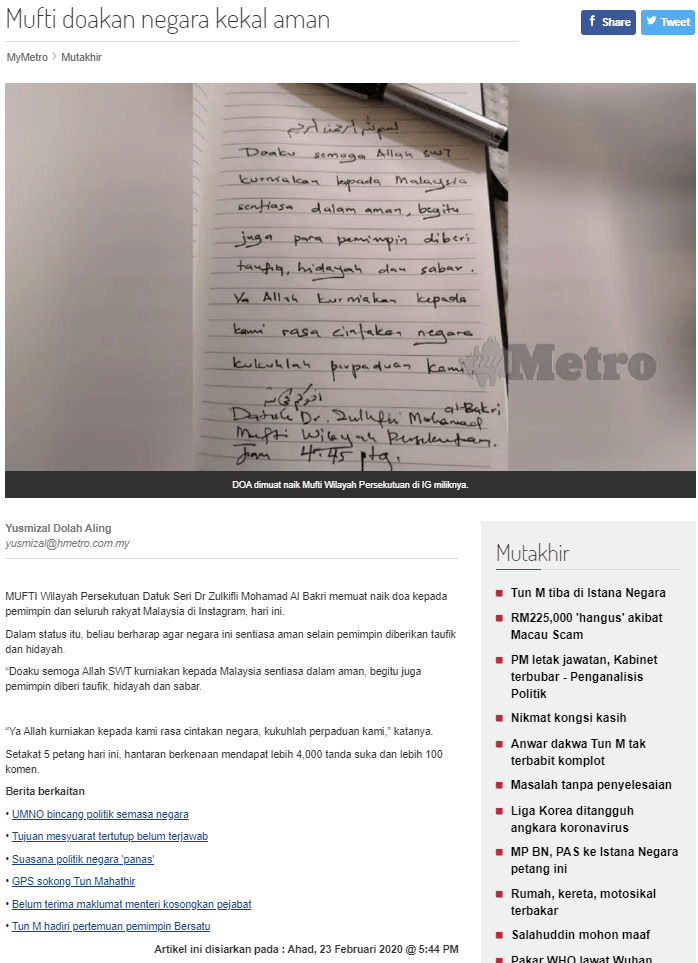 Mufti doakan negara kekal aman
Share
Tweet
MyMetro > Mutakhir
بسم الله الرحمن الرحيم
Doaku semoga Allah SWT
kurniakan kepada Malaysia
sentiasa dalam aman, begitu
juga para pemimpin diberi
taufiq, hidayah dan sabar.
Ya Allah kurniakan kepada
kami rasa cintakan negara
kukuhlah perpaduan kami
myMetro
al-Bakri
Datuk Dr. Zulkifli Mohamad
Mufti Wilayah Persekutuan.
Jam 4.45 ptg.
DOA dimuat naik Mufti Wilayah Persekutuan di IG miliknya.
Yusmizal Dolah Aling
yusmizal@hmetro.com.my
MUFTI Wilayah Persekutuan Datuk Seri Dr Zulkifli Mohamad Al Bakri memuat naik doa kepada
pemimpin dan seluruh rakyat Malaysia di Instagram, hari ini.
Dalam status itu, beliau berharap agar negara ini sentiasa aman selain pemimpin diberikan taufik
dan hidayah.
“Doaku semoga Allah SWT kurniakan kepada Malaysia sentiasa dalam aman, begitu juga
pemimpin diberi taufik, hidayah dan sabar.
“Ya Allah kurniakan kepada kami rasa cintakan negara, kukuhlah perpaduan kami,” katanya.
Setakat 5 petang hari ini, hantaran berkenaan mendapat lebih 4,000 tanda suka dan lebih 100
komen.
Berita berkaitan
• UMNO bincang politik semasa negara
• Tujuan mesyuarat tertutup belum terjawab
• Suasana politik negara 'panas'
• GPS sokong Tun Mahathir
• Belum terima maklumat menteri kosongkan pejabat
• Tun M hadiri pertemuan pemimpin Bersatu
Artikel ini disiarkan pada : Ahad, 23 Februari 2020 @ 5:44 PM
Mutakhir
Tun M tiba di Istana Negara
RM225,000 'hangus' akibat
Macau Scam
PM letak jawatan, Kabinet
terbubar - Penganalisis
Politik
Nikmat kongsi kasih
Anwar dakwa Tun M tak
terbabit komplot
Masalah tanpa penyelesaian
Liga Korea ditangguh
angkara koronavirus
MP BN, PAS ke Istana Negara
petang ini
Rumah, kereta, motosikal
terbakar
Salahuddin mohon maaf
Pakar WHO lawat Wuhan